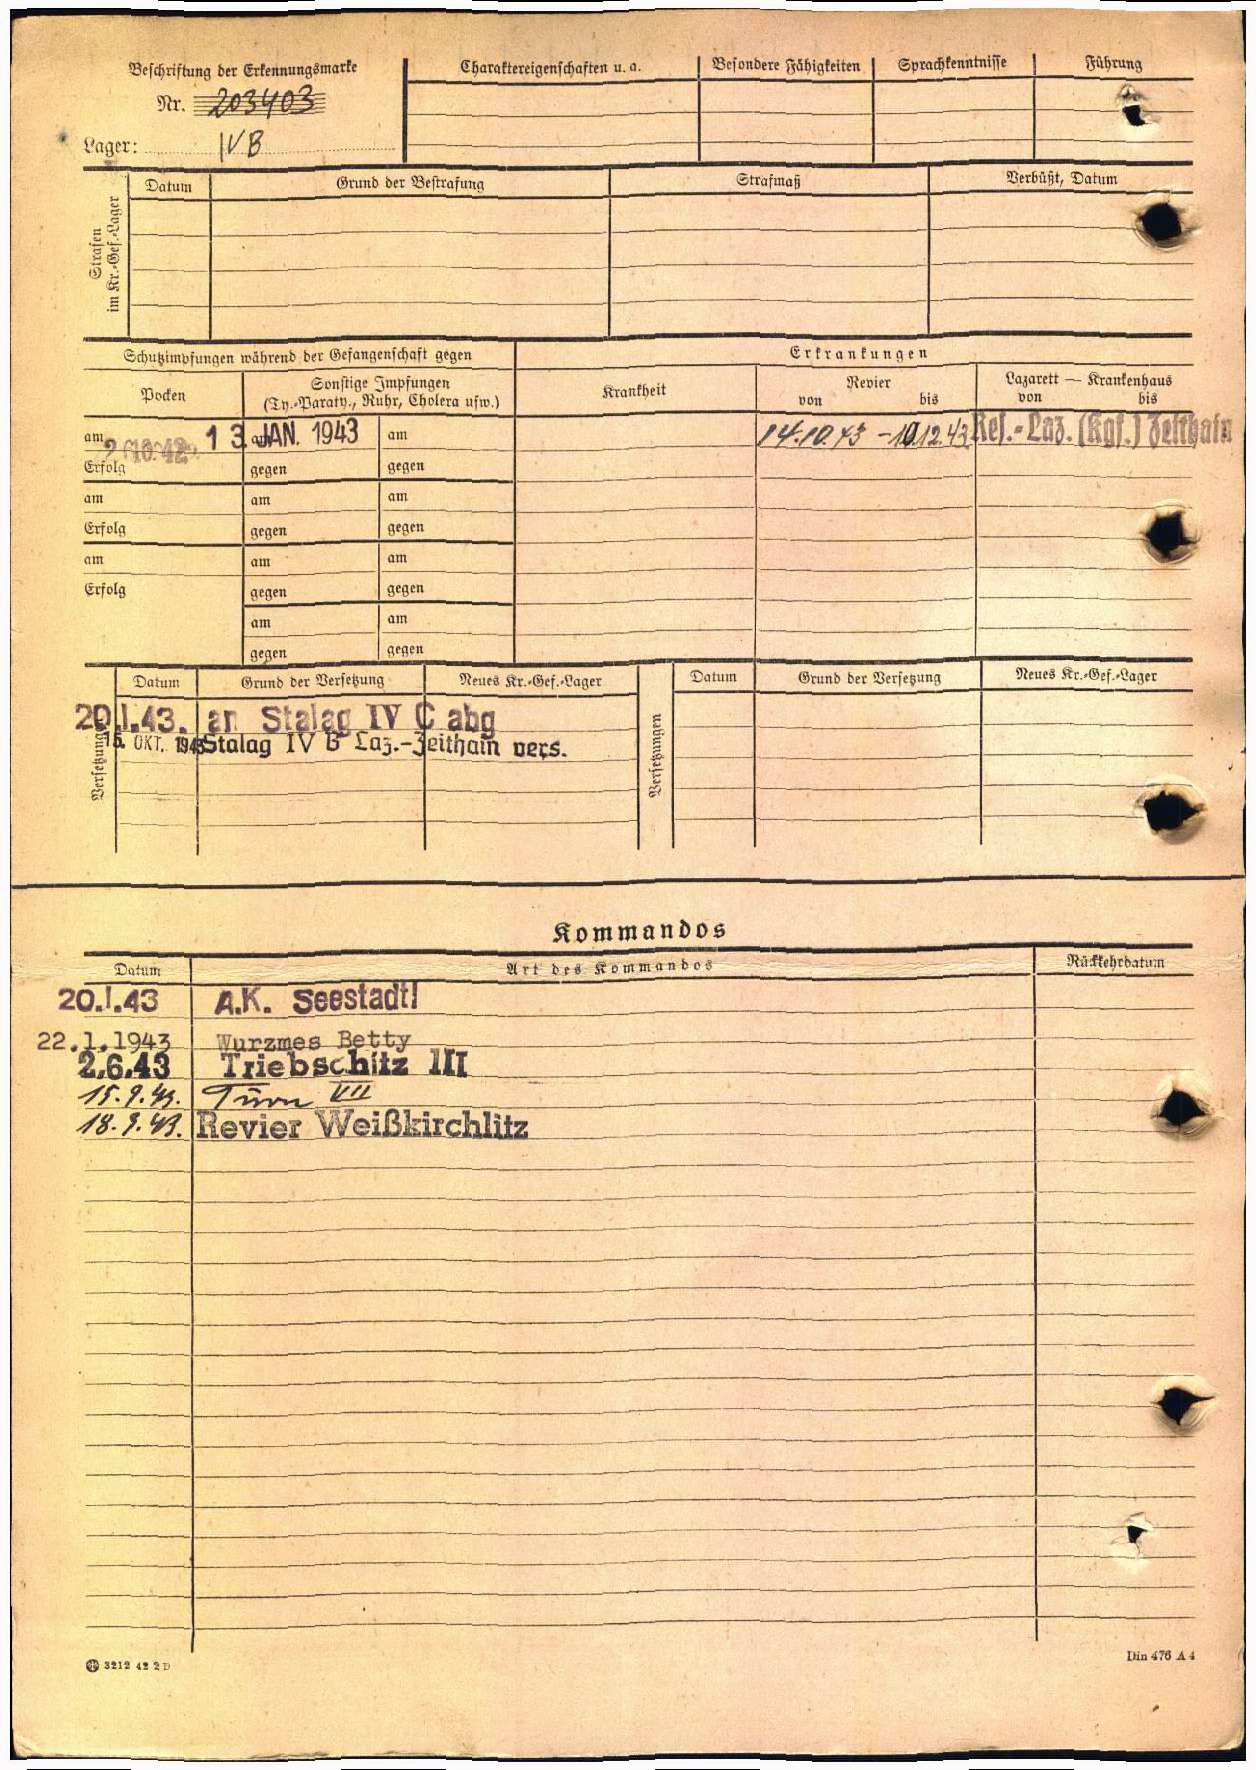 Beschriftung der Erkennungsmarke
Nr. 203403
Lager: IVB
Charaktereigenschaften u. a.
Besondere Fähigkeiten
Sprachkenntnisse
Führung
Strafen
im Kr.-Gef.-Lager
Datum
Grund der Bestrafung
Strafmaß
Verbüßt, Datum
Schutzimpfungen während der Gefangenschaft gegen
Erkrankungen
Pocken
Sonstige Impfungen
(Ty.-Paraty., Ruhr, Cholera usw.)
Krankheit
Revier
von bis
Lazarett — Krankenhaus
von bis
am 13. JAN. 1943 am
14.10.43 - 10.12.43 Res.-Laz. (Kgf.) Zeithain
Erfolg gegen gegen
am am am
Erfolg gegen gegen
am am am
Erfolg gegen gegen
am am
gegen gegen
Versetzungen
Datum Grund der Versetzung Neues Kr.-Gef.-Lager
20.1.43. an Stalag IV C abg
15. OKT. 1943 Stalag IV B Laz.-Zeithain vers.
Versetzungen
Datum Grund der Versetzung Neues Kr.-Gef.-Lager
Kommandos
Datum Art des Kommandos Rückkehrdatum
20.1.43 A.K. Seestadtl
22.1.1943 Wurzmes Betty
2.6.43 Triebschitz III
15.9.43. Turn VII
18.9.43. Revier Weißkirchlitz
3212 42 2 D
Din 476 A 4